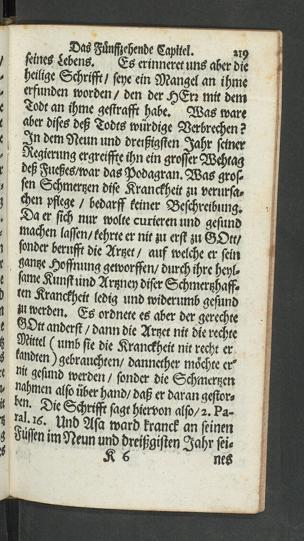 Das Fünffzehende Capitel. 219
seines Lebens. Es erinneret uns aber die
heilige Schrifft / seye ein Mangel an ihme
erfunden worden / den der HErr mit dem
Todt an ihme gestrafft habe. Was ware
aber dises deß Todts würdige Verbrechen?
In dem Neun und dreißigsten Jahr seiner
Regierung ergreiffte ihn ein grosser Wehtag
deß Fueßes / war das Podagran. Was gros-
sen Schmertzen dise Kranckheit zu verursa-
chen pflege / bedarff keiner Beschreibung.
Da er sich nur wolte curieren und gesund
machen lassen / kehrte er nit zu erst zu GOtt /
sonder berufft die Artzet / auf welche er sein
gantze Hoffnung geworffen / durch ihre heyl-
same Kunst und Artzney diser Schmertzhaff-
ten Kranckheit ledig und widerumb gesund
zu werden. Es ordnete es aber der gerechte
GOtt anderst / dann die Artzet nit die rechte
Mittel ( umb sie die Kranckheit nit recht er-
kandten ) gebrauchten / dannether möchte er
nit gesund werden / sonder die Schmertzen
nahmen also über hand / daß er daran gestor-
ben. Die Schrifft sagt hiervon also / 2. Pa-
ral. 16. Und Asa ward kranck an seinen
Füssen im Neun und dreißigisten Jahr sei-
K 6 nes